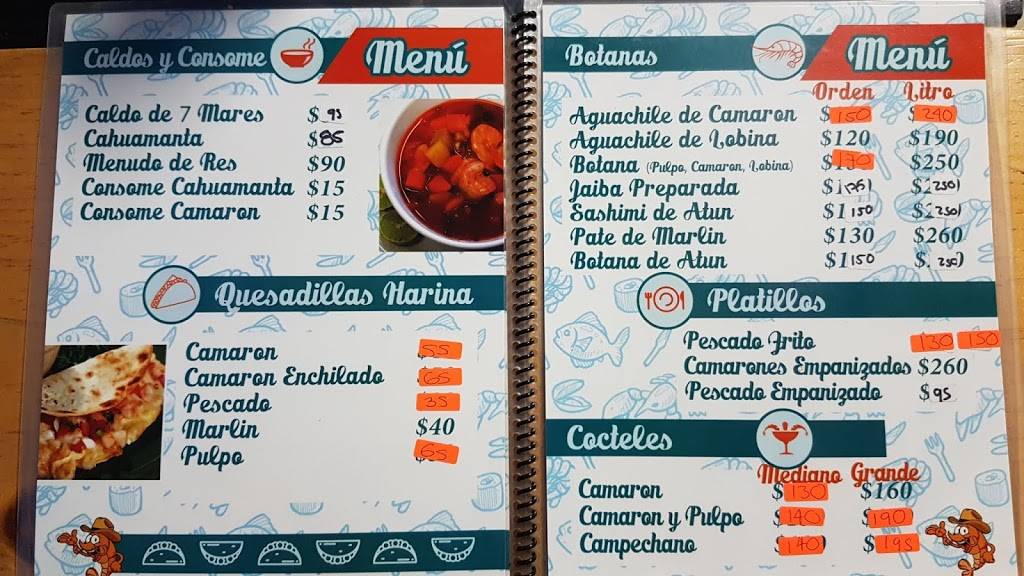 Caldos y Consome
Menú
Caldo de 7 Mares $ 95
Cahuamanta $85
Menudo de Res $90
Consome Cahuamanta $15
Consome Camaron $15
Quesadillas Harina
Camaron 55
Camaron Enchilado 65
Pescado 35
Marlin $40
Pulpo 65
Botanas
Menú
Orden Litro
Aguachile de Camaron $150 $240
Aguachile de Lobina $120 $190
Botana (Pulpo, Camaron, Lobina) $170 $250
Jaiba Preparada
Sashimi de Atun $1 150 $2 250
Pate de Marlin $130 $260
Botana de Atun $1 150 $ 250
Platillos
Pescado Frito 130 150
Camarones Empanizados $260
Pescado Empanizado $95
Cocteles
Mediano Grande
Camaron $130 $160
Camaron y Pulpo $140 $190
Campechano $140 $195